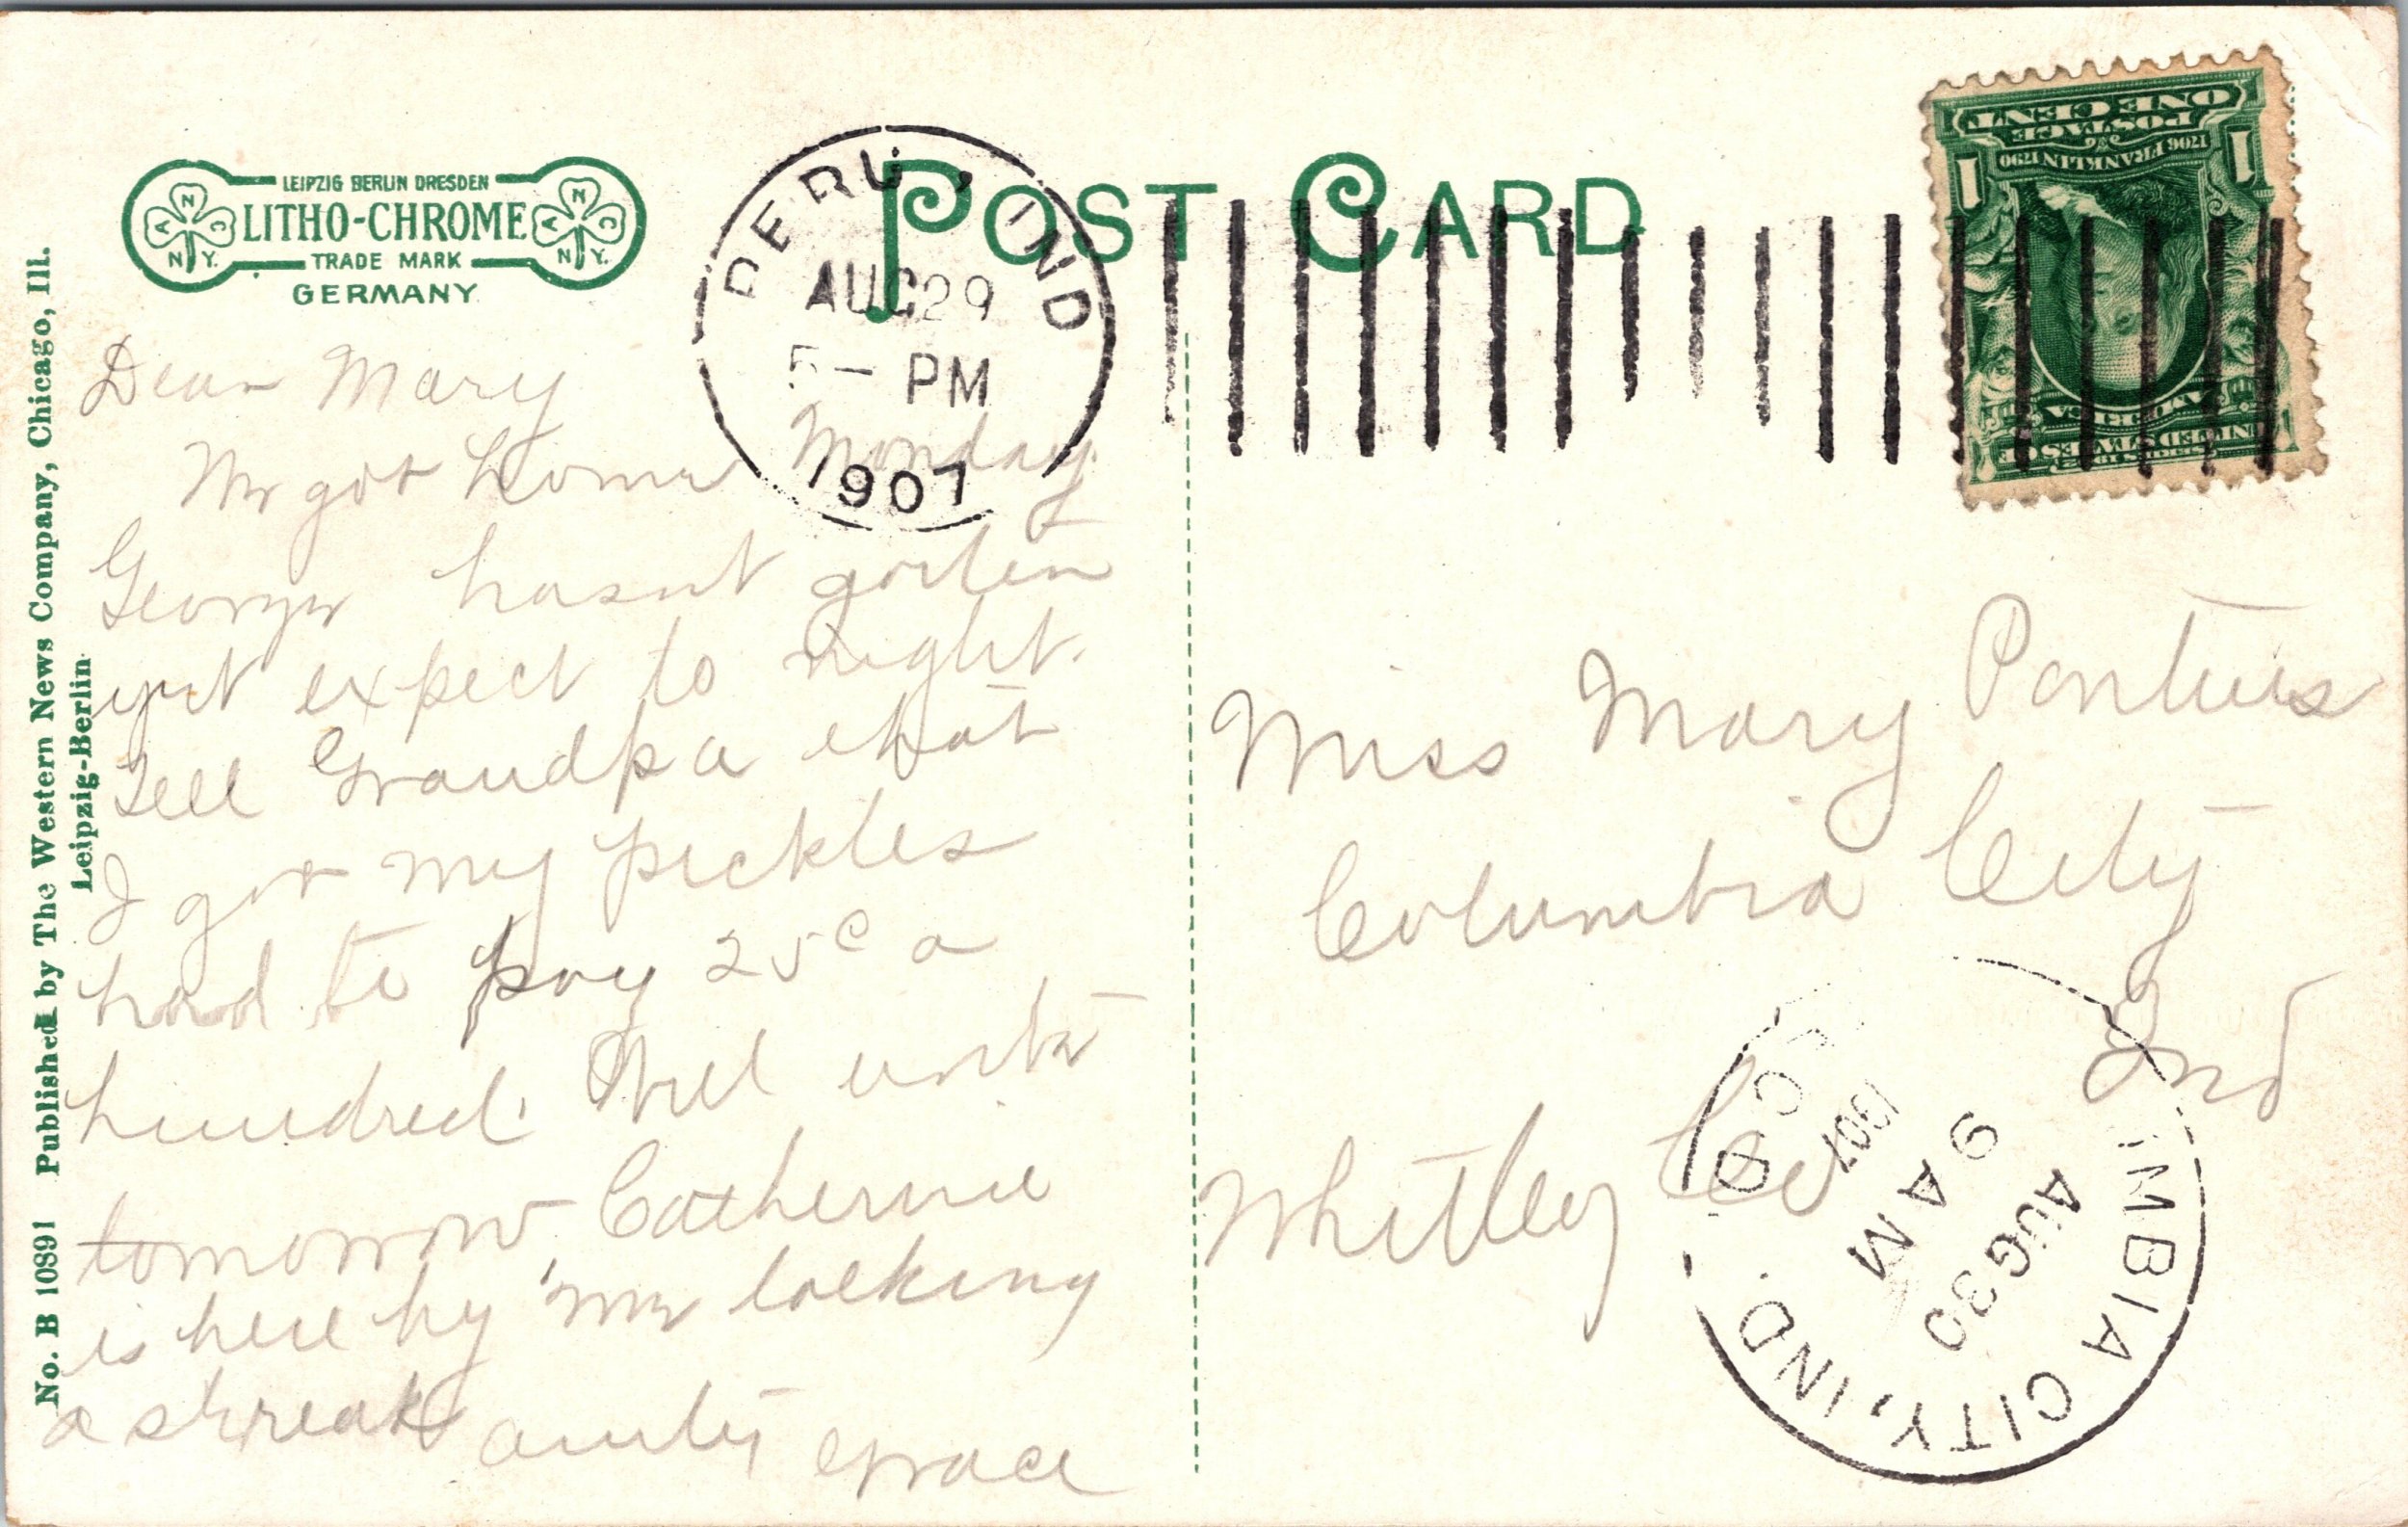 LEIPZIG BERLIN DRESDEN
LITHO-CHROME
TRADE MARK
GERMANY
A N C
N.Y.
A N C
N.Y.
POST CARD
PERU, IND
AUG 29
5 - PM
1907
ONE CENT
POSTAGE
1706 FRANKLIN 1790
1 1
UNITED STATES OF
AMERICA
SERIES 1902
No. B 10891 Published by The Western News Company, Chicago, Ill.
Leipzig-Berlin
Dear Mary
We got home Monday.
George hasnt gotten
yet expect to night.
Tell Grandpa that
I got my pickles
had to pay 25c a
hundred. Will write
tomorrow. Catherine
is here by me looking
a streak aunty Grace
Miss Mary Pontius
Columbia City
Ind
Whitley Co
UMBIA CITY, IND.
AUG 30
9 AM
1907